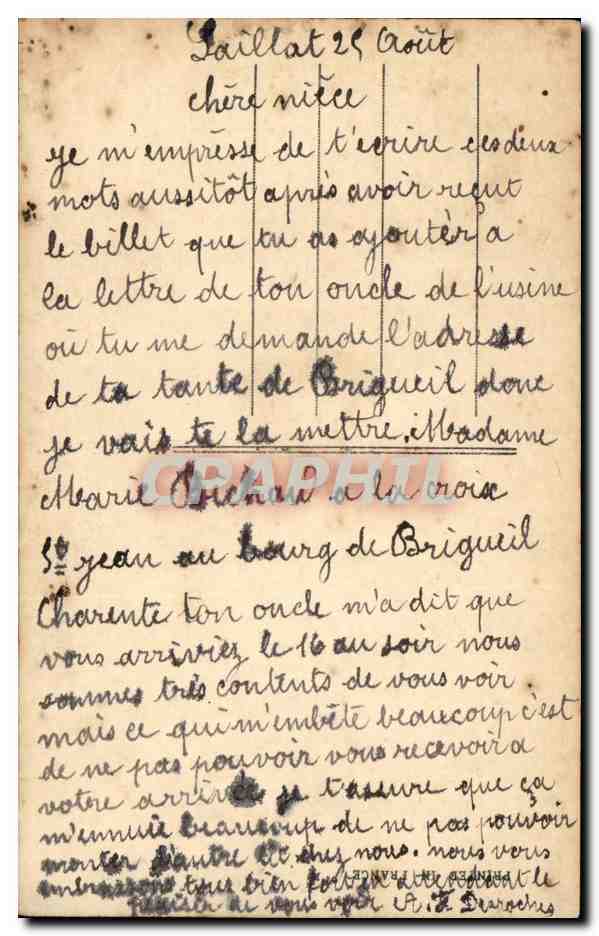 Saillat 25 Août
chère nièce
je m'emprèsse de t'ecrire ces deux
mots aussitôt après avoir reçut
le billet que tu as ajoutèr a
la lettre de ton oncle de l'usine
où tu me demande l'adresse
de ta tante de Brigueil donc
je vais te la mettre. Madame
CPARAPHIL
Marie a la croix
St jean au bourg de Brigueil
Charente ton oncle m'a dit que
vous arriviez le 16 au soir nous
sommes très contents de vous voir
mais ce qui m'embête beaucoup c'est
de ne pas pouvoir vous recevoir a
votre arrivée je t'assure que ça
m'ennuie beaucoup de ne pas pouvoir
monter l'autre lit chez nous. nous vous
embrassons tous bien fort en attendant le
PRINTED IN FRANCE
plaisir de vous voir et. Desroches